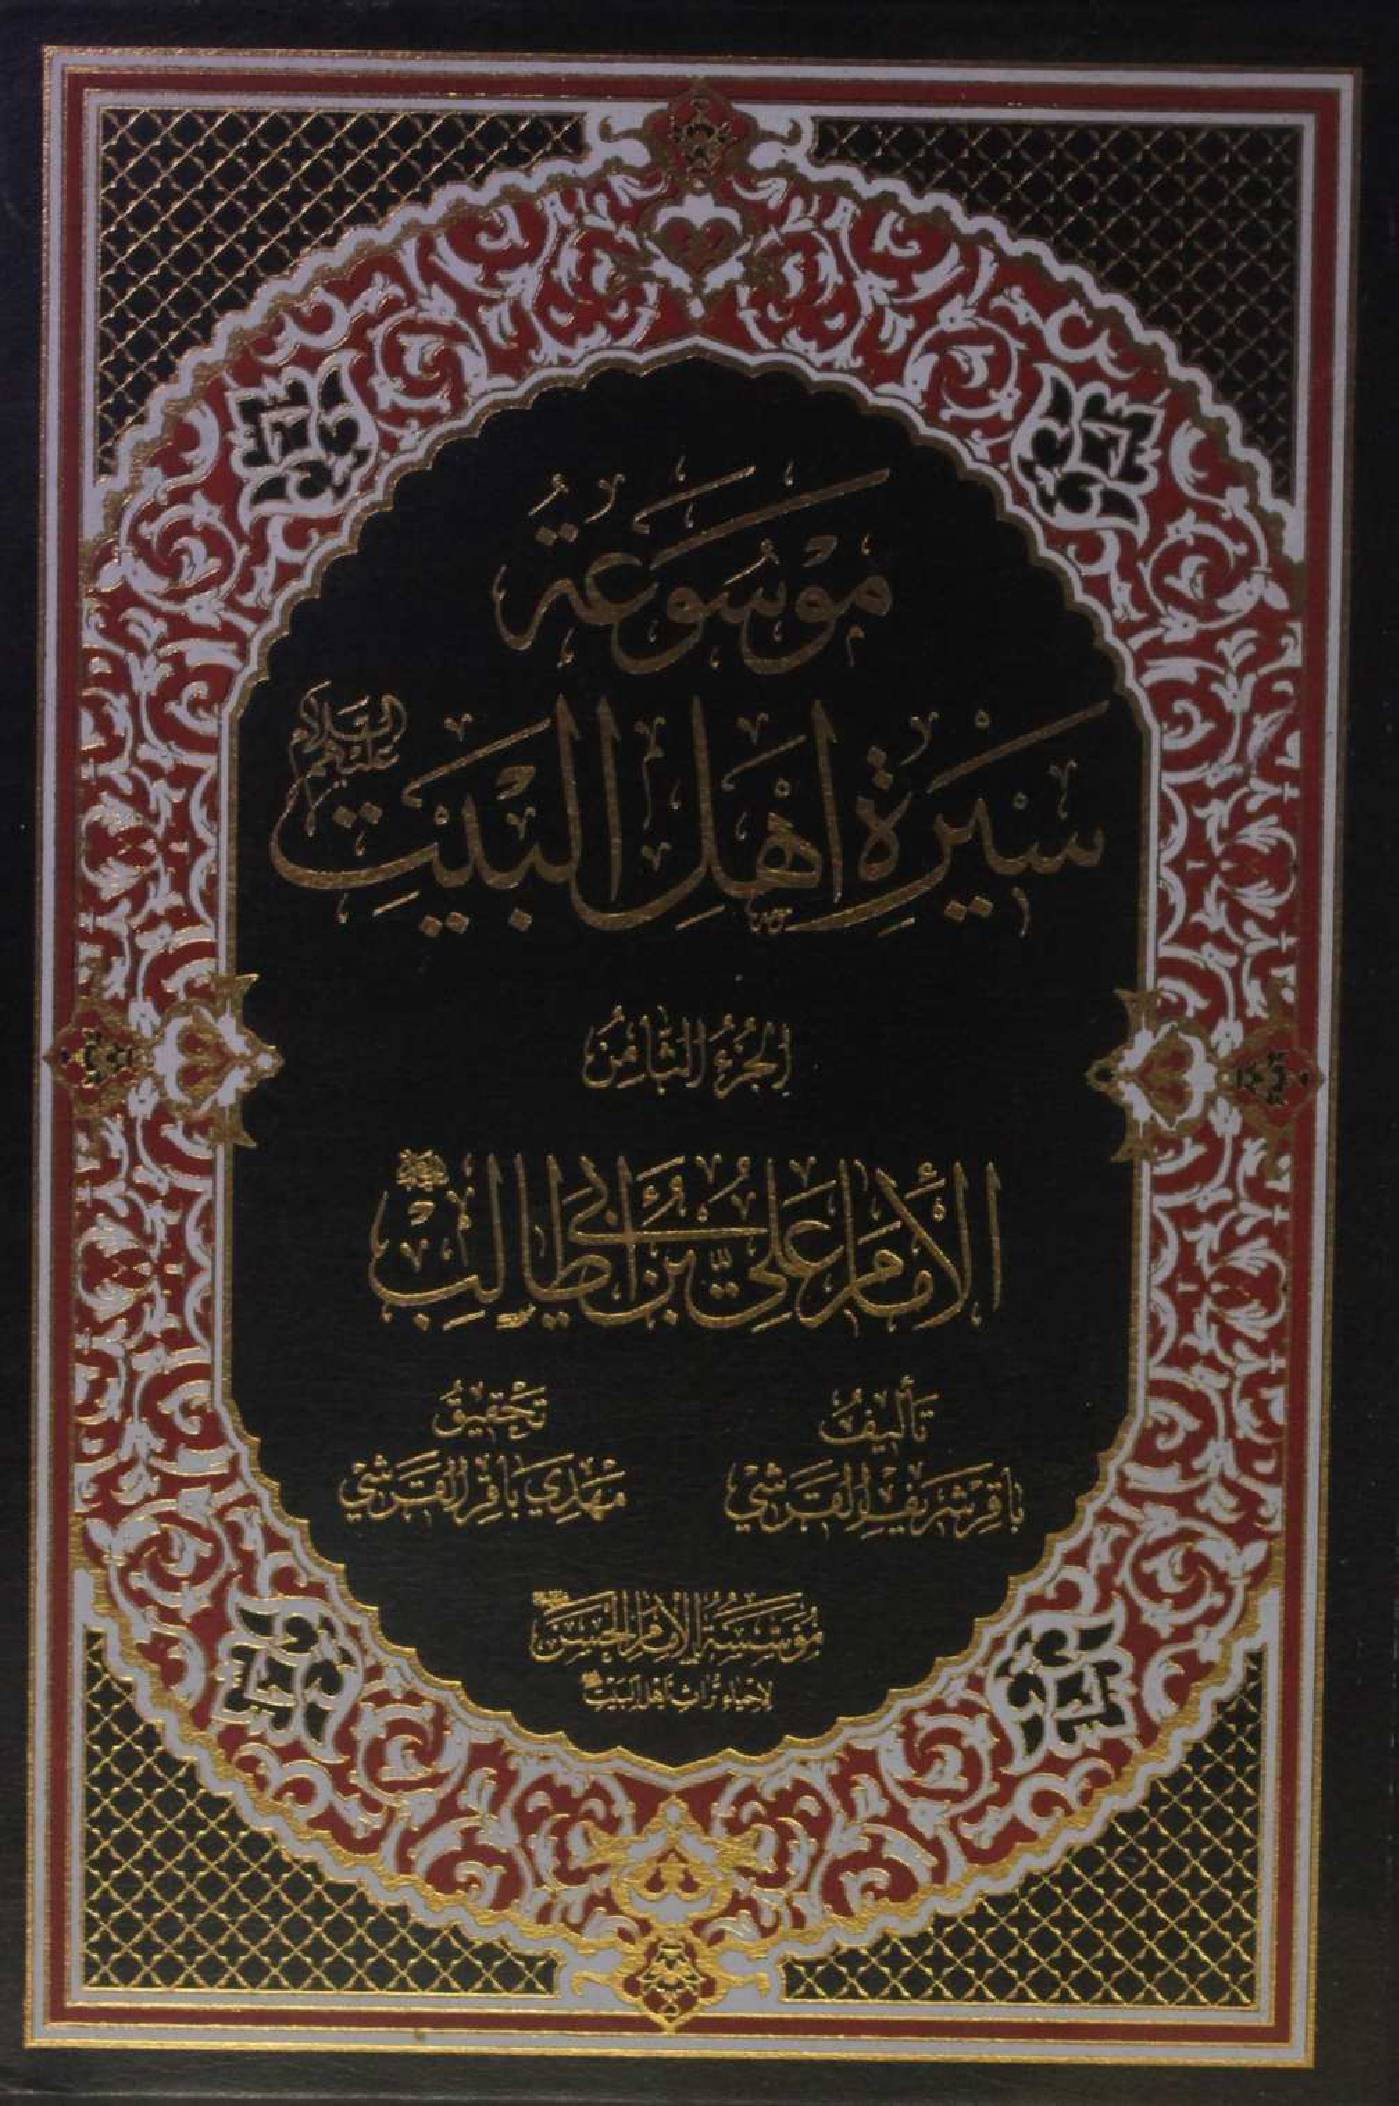 مَوْسُوعَةُ
سِيرَةِ اَهْلِ الْبَيْتِ عَلَيْهِمُ السَّلَام
الجُزءُ الثَّامِنُ
الْأِمَامُ عَلِيُّ بْنُ أَبِي طَالِبٍ
تَأليفُ
بَاقِر شَرِيفِ الْقَرَشِيّ
تَحْقِيقُ
مَهْدِي بَاقِر الْقَرَشِيّ
مُؤَسَّسَةُ الْإِمَامِ الْحَسَنِ
لِإحْيَاءِ تُرَاثِ أَهْلِ الْبَيْتِ